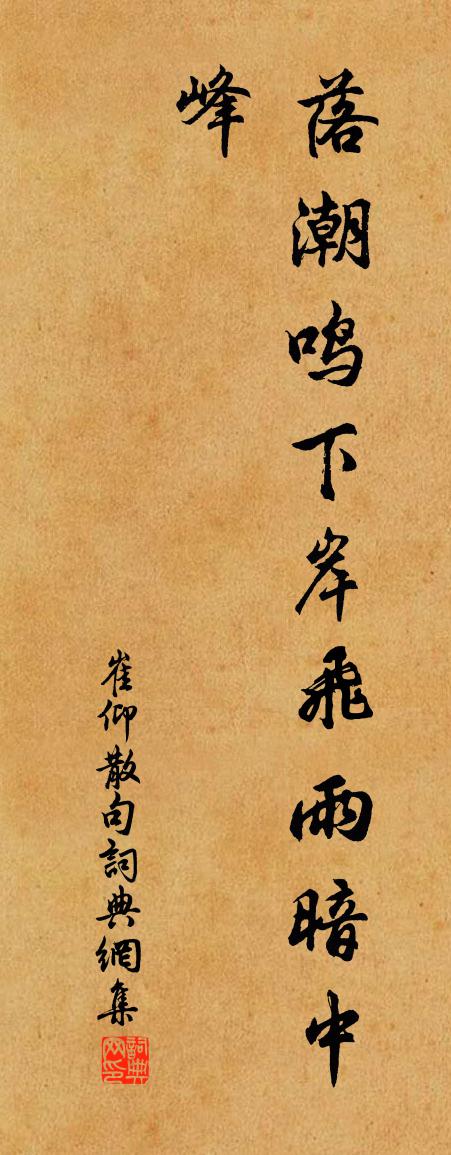 落潮鸣下岸飛雨暗中
峰
崔仰散句詞典網集
詞典网印